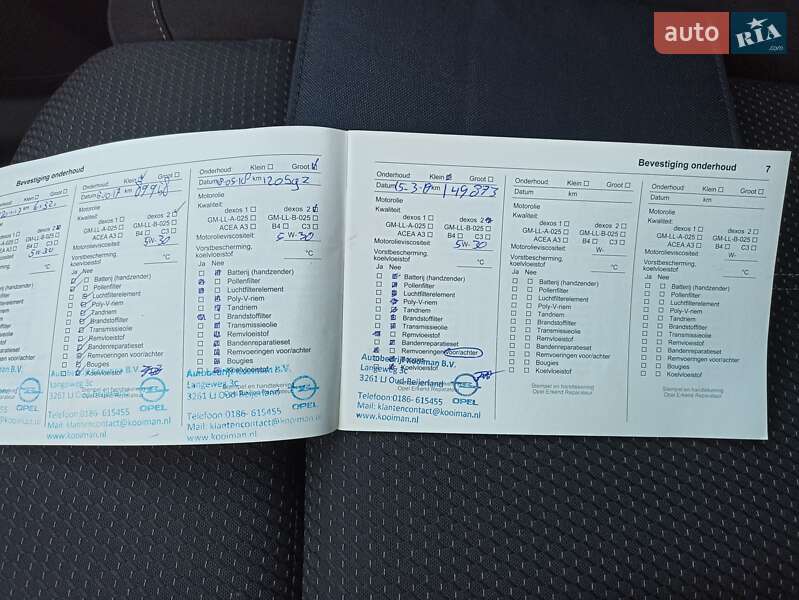 auto RIA .com
Bevestiging onderhoud
Onderhoud: Klein Groot
Motorolie
Kwaliteit:
dexos 1 dexos 2
GM-LL-A-025 GM-LL-B-025
ACEA A3 B4 C3
5W-30
Ja Nee
Onderhoud: Klein Groot
Datum km
Motorolie
Kwaliteit:
dexos 1 dexos 2
GM-LL-A-025 GM-LL-B-025
ACEA A3 B4 C3
Motorolieviscositeit 5W-30
Vorstbescherming,
koelvloeistof °C
Ja Nee
Batterij (handzender)
Pollenfilter
Luchtfilterelement
Poly-V-riem
Tandriem
Brandstoffilter
Transmissieolie
Remvloeistof
Bandenreparatieset
Remvoeringen voor/achter
Bougies
Koelvloeistof
OPEL
Telefoon:0186- 615455
Mail: klantencontact@kooiman.nl
www.kooiman.nl
Onderhoud: Klein Groot
Datum km 120592
Motorolie
Kwaliteit:
dexos 1 dexos 2
GM-LL-A-025 GM-LL-B-025
ACEA A3 B4 C3
Motorolieviscositeit 5 W- 30
Vorstbescherming,
koelvloeistof °C
Ja Nee
Batterij (handzender)
Pollenfilter
Luchtfilterelement
Poly-V-riem
Tandriem
Brandstoffilter
Transmissieolie
Remvloeistof
Bandenreparatieset
Remvoeringen voor/achter
Bougies
Koelvloeistof
Langeweg 3c
3261 LJ Oud-Beijerland
OPEL
Telefoon:0186- 615455
Mail: klantencontact@kooiman.nl
www.kooiman.nl
Bevestiging onderhoud 7
Onderhoud: Klein Groot
Datum 15-3-19 km 149873
Motorolie
Kwaliteit:
dexos 1 dexos 2
GM-LL-A-025 GM-LL-B-025
ACEA A3 B4 C3
Motorolieviscositeit 5W-30
Vorstbescherming,
koelvloeistof °C
Ja Nee
Batterij (handzender)
Pollenfilter
Luchtfilterelement
Poly-V-riem
Tandriem
Brandstoffilter
Transmissieolie
Remvloeistof
Bandenreparatieset
Remvoeringen voor/achter
Bougies
Koelvloeistof
Autobedrijf Kooiman B.V.
Langeweg 3c
3261 LJ Oud-Beijerland
OPEL
Telefoon:0186- 615455
Mail: klantencontact@kooiman.nl
www.kooiman.nl
Onderhoud: Klein Groot
Datum km
Motorolie
Kwaliteit:
dexos 1 dexos 2
GM-LL-A-025 GM-LL-B-025
ACEA A3 B4 C3
Motorolieviscositeit W-
Vorstbescherming,
koelvloeistof °C
Ja Nee
Batterij (handzender)
Pollenfilter
Luchtfilterelement
Poly-V-riem
Tandriem
Brandstoffilter
Transmissieolie
Remvloeistof
Bandenreparatieset
Remvoeringen voor/achter
Bougies
Koelvloeistof
Stempel en handtekening
Opel Erkend Reparateur
Onderhoud: Klein Groot
Datum km
Motorolie
Kwaliteit:
dexos 1 dexos 2
GM-LL-A-025 GM-LL-B-025
ACEA A3 B4 C3
Motorolieviscositeit W-
Vorstbescherming,
koelvloeistof °C
Ja Nee
Batterij (handzender)
Pollenfilter
Luchtfilterelement
Poly-V-riem
Tandriem
Brandstoffilter
Transmissieolie
Remvloeistof
Bandenreparatieset
Remvoeringen voor/achter
Bougies
Koelvloeistof
Stempel en handtekening
Opel Erkend Reparateur